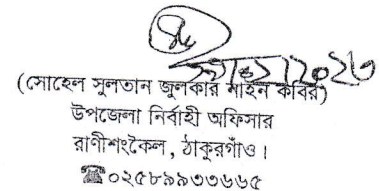 (সোহেল সুলতান জুলকার নাইন কবির)
উপজেলা নির্বাহী অফিসার
রাণীশংকৈল, ঠাকুরগাঁও।
☎০২৫৮৯৯৩৩৬৬৫